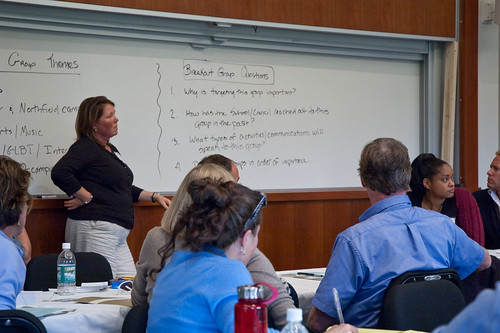 Group Themes
& Northfield camp
rts / Music
/GLBT/ Inte
Breakout Group Questions
1. Why is targeting this group important?
2. How has the School/Council reached out to this
group in the past?
3. What types of activities/communications will
speak to this group?
4. in order of importance